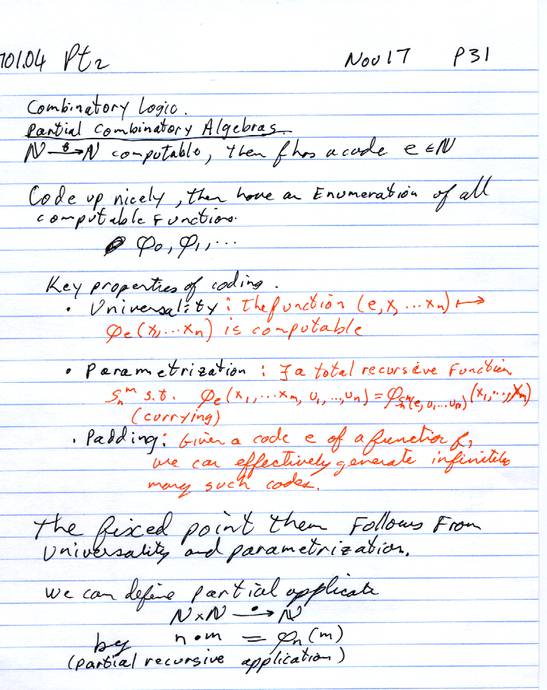 701.04 Pt2 Nov 17 P31
Combinatory Logic.
Partial Combinatory Algebras
N →f N computable, then f has a code e ∈ N
Code up nicely, then have an Enumeration of all
computable Functions.
φ0, φ1, ...
Key properties of coding.
• Universality: the function (e, x, ... xn) ↦
φe(x, ... xn) is computable
• Parametrization: ∃ a total recursive Function
S^m_n s.t. φe(x1, ... xm, u1, .., un) = φ_{S^m_n(e, u1 ... un)}(x1, ..., xm)
(currying)
• Padding: Given a code e of a function f,
we can effectively generate infinitely
many such codes.
The fixed point them Follows From
Universality and parametrization.
We can define partial applicate
N×N →• N
by n•m = φn(m)
(partial recursive application)